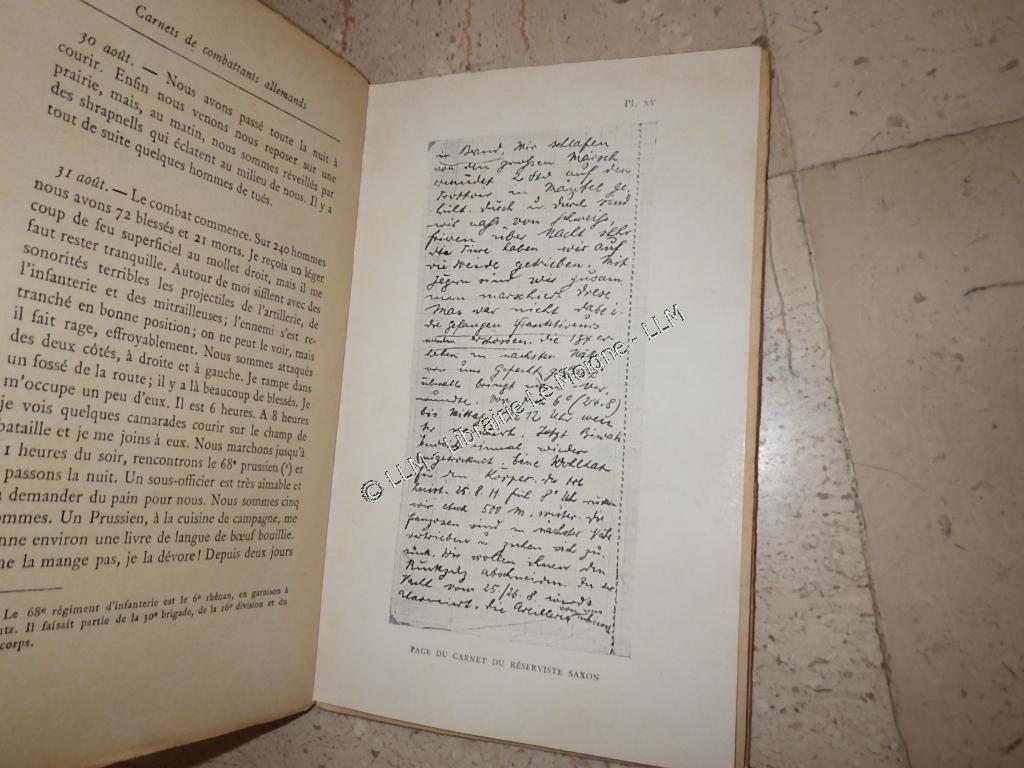 Carnets de combattants allemands
30 août. — Nous avons passé toute la nuit à
courir. Enfin nous venons nous reposer sur une
prairie, mais, au matin, nous sommes réveillés par
des shrapnells qui éclatent au milieu de nous. Il y a
tout de suite quelques hommes de tués.
31 août. — Le combat commence. Sur 240 hommes
nous avons 72 blessés et 21 morts. Je reçois un léger
coup de feu superficiel au mollet droit, mais il me
faut rester tranquille. Autour de moi sifflent avec des
sonorités terribles les projectiles de l'artillerie, de
l'infanterie et des mitrailleuses; l'ennemi s'est re-
tranché en bonne position; on ne peut le voir, mais
il fait rage, effroyablement. Nous sommes attaqués
des deux côtés, à droite et à gauche. Je rampe dans
un fossé de la route; il y a là beaucoup de blessés. Je
m'occupe un peu d'eux. Il est 6 heures. A 8 heures
je vois quelques camarades courir sur le champ de
bataille et je me joins à eux. Nous marchons jusqu'à
1 heures du soir, rencontrons le 68e prussien (1) et
passons la nuit. Un sous-officier est très aimable et
demander du pain pour nous. Nous sommes cinq
ommes. Un Prussien, à la cuisine de campagne, me
nne environ une livre de langue de bœuf bouillie.
ne la mange pas, je la dévore! Depuis deux jours
Le 68e régiment d'infanterie est le 6e rhénan, en garnison à
tz. Il faisait partie de la 30e brigade, de la 16e division et du
corps.
Pl. XV
in Brand. Wir schlafen
von den großen Marsch
ermüdet auf dem
Trottoir in Mäntel ge
hüllt. Durch u. durch sind
wir naß von Schweiß,
frieren über Nacht sehr
die Tiere haben wir auf
die Weide getrieben. Mit
Jägern sind wir zusam
men marschiert. Diese
Mas war nicht dabei.
die gefangen Franktireurs
werden erschossen. die
leben in nächster Nähe
vor uns Gefecht
überall Ver
wundete. von 6°/24.8/
bis 12 Uhr wei
ter marschiert. Jetzt Biwak
einmal wieder
ausgetrocknet. Eine Wohltat
für den Körper. Die
25.8.14 früh 8° Uhr rücken
wir etwa 500 M. weiter. die
Franzosen sind in nächster Nähe
vertrieben u. ziehen sich zu
rück. Wir wollen ihnen den
Rückzug abschneiden. In der
Nacht vom 25/26.8 wurde
alarmiert. die Artillerie
PAGE DU CARNET DU RÉSERVISTE SAXON
© LLM - Librairie Le Moigne - LLM